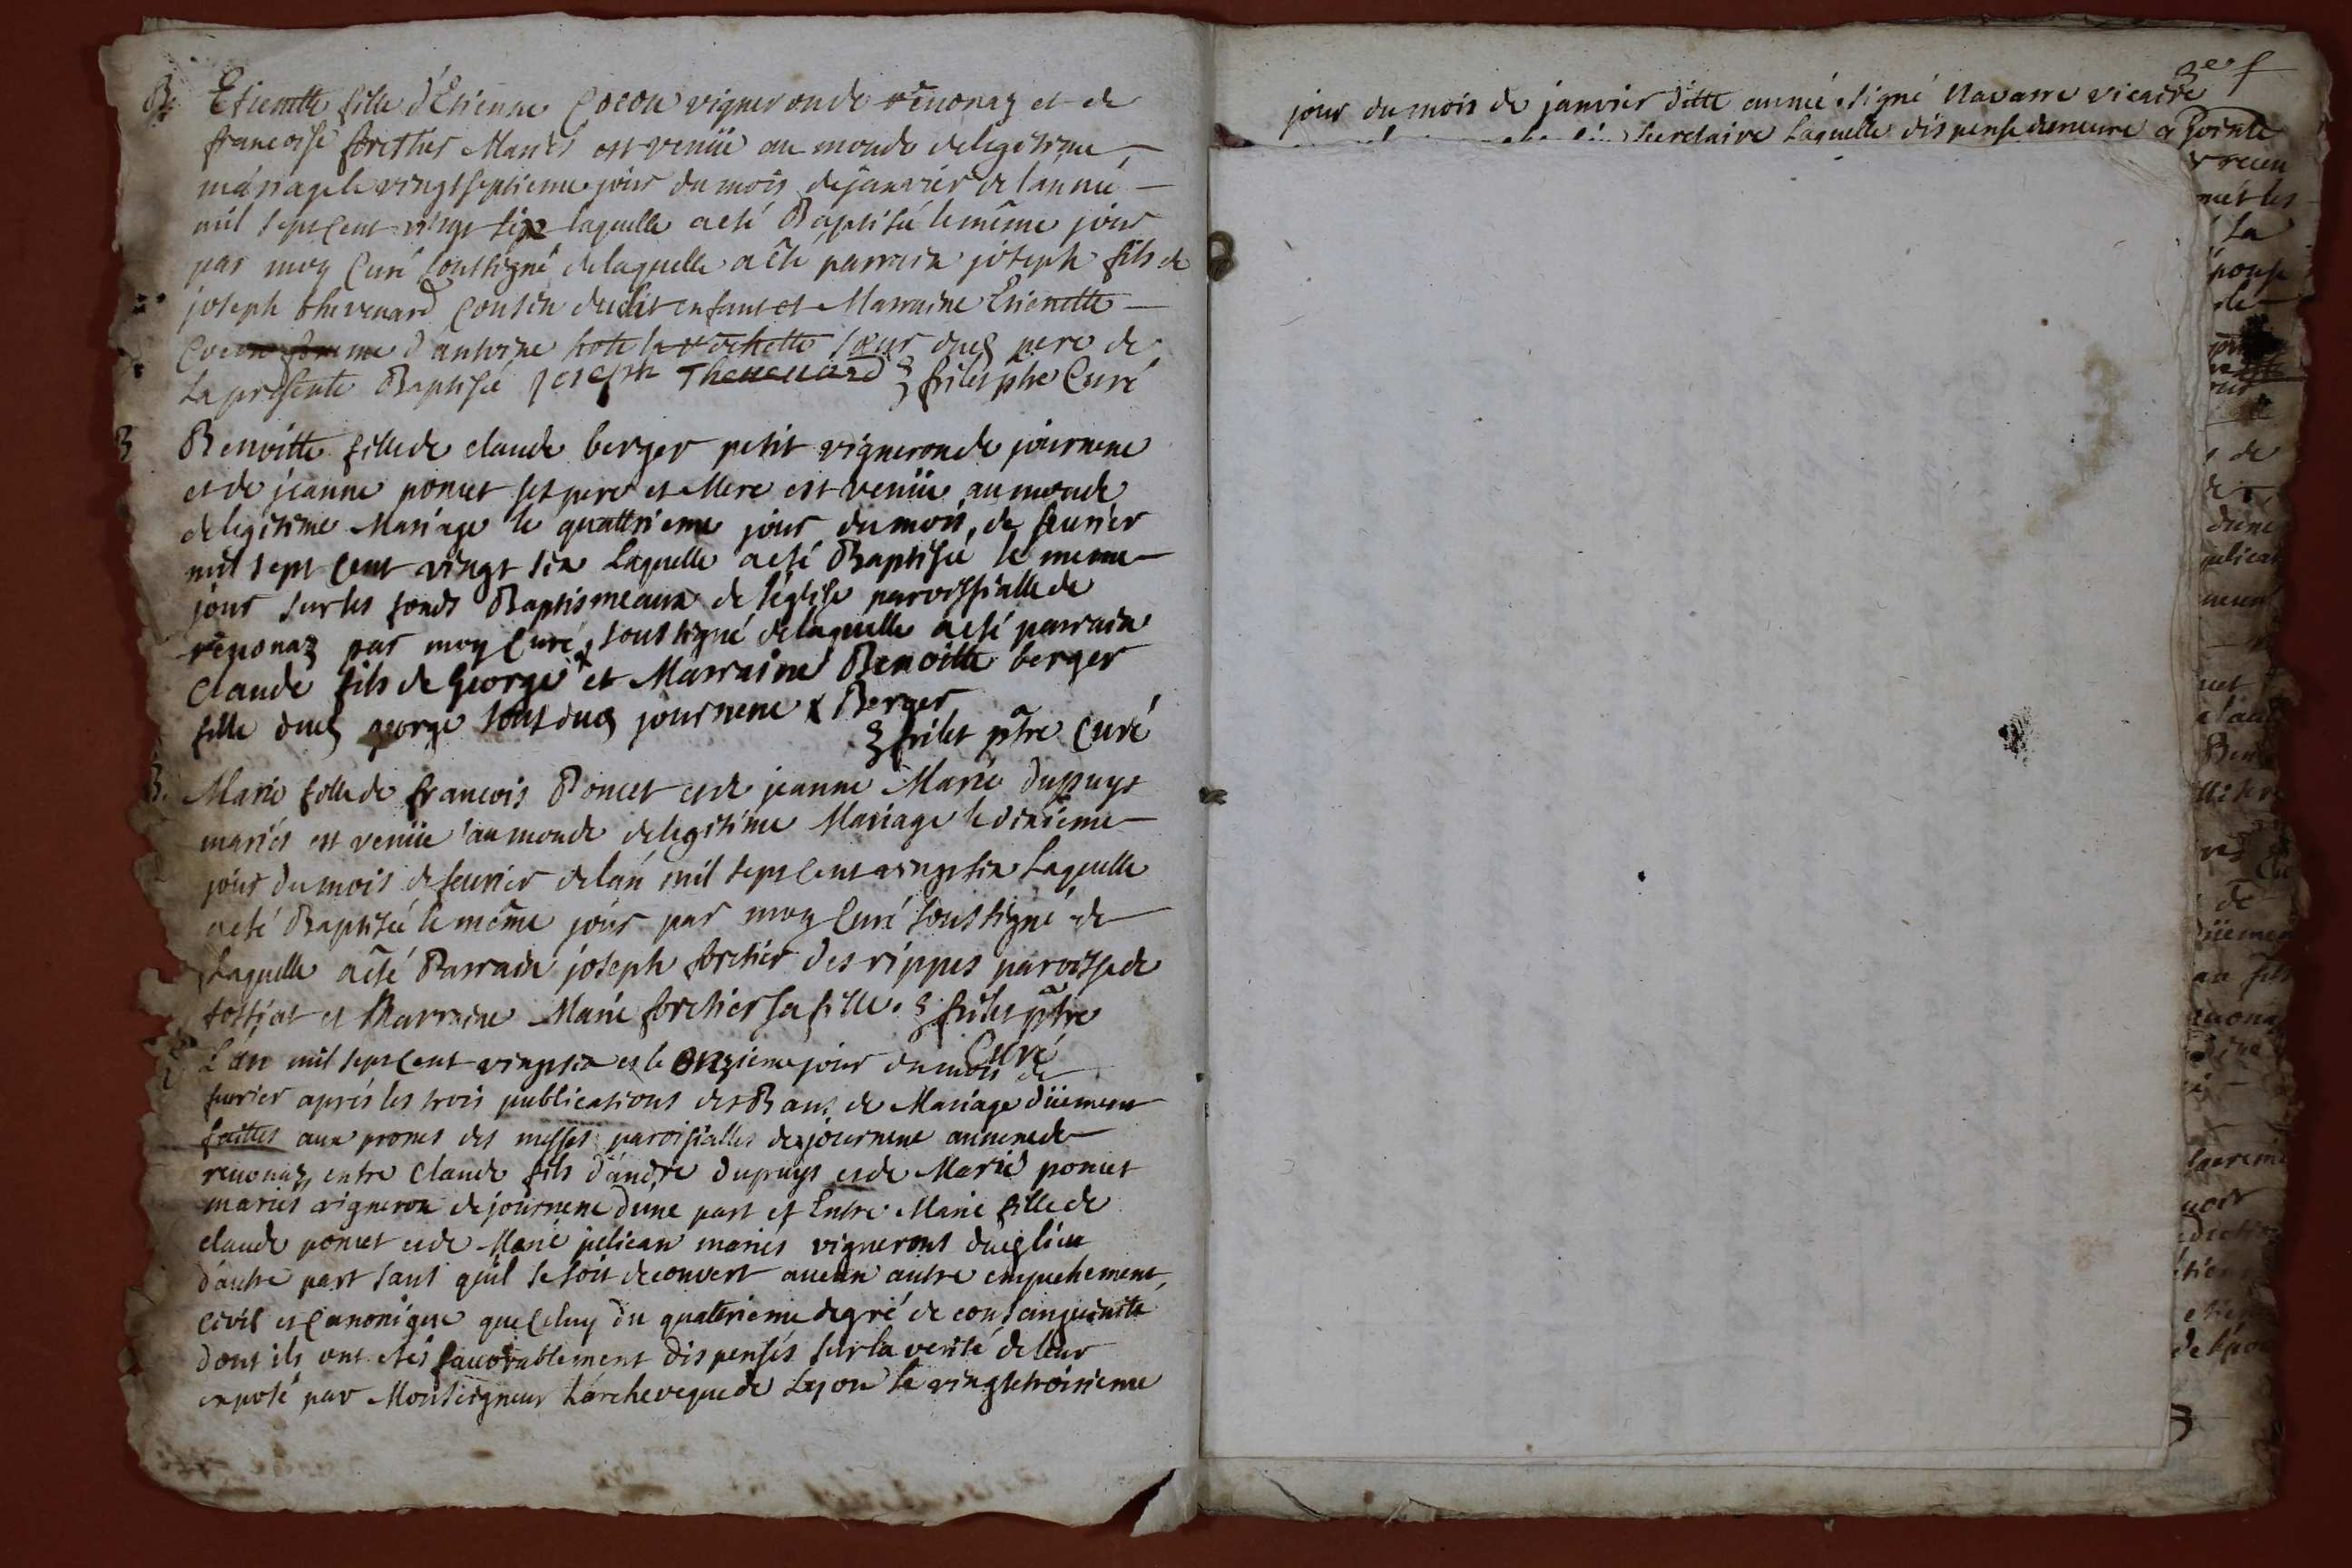 B. Etienette fille d'Etienne Cocon vigneron de reuonaz et de
francoise forethier Mariés est venüe au monde de legitime
mariage le vingtseptieme jour du mois de janvier de l'année
mil sept cent vingt six laquelle a esté Baptisée le même jour
par moy Curé soussigné de laquelle a êté parrain joseph fils de
joseph thevenard cousin dudit enfant et Marraine Etienette
Cocon femme d'antoine hote la sœur duq pere de
La presente Baptisée joseph Theuenard frilet ptre Curé
B Benoitte fille de claude berger petit vigneron de journene
et de jeanne poncet ses pere et Mere est venüe au monde
de legitime Mariage le quattrieme jour du mois de feurier
mil sept cent vingt six Laquelle a esté Baptisée le meme
jour sur les fonds Baptismeaux de l'église parroissialle de
reuonaz par moy Curé soussigné de laquelle a esté parrain
Claude fils de George et Marraine Benoitte berger
fille duq george tous duq journene x Berger
frilet ptre Curé
B. Marie fille de francois Poncet et de jeanne Marie Dupuys
mariés est venüe au monde de legitime Mariage le dixieme
jour du mois de feurier de l'an mil sept cent vingt six Laquelle
a esté Baptisée le même jour par moy Curé soussigné de
Laquelle a esté Parrain joseph forethier des rippes paroisse de
fossiat et Marraine Marie forethier sa fille. frilet ptre
Curé
L'an mil sept cent vingt six et le onzieme jour du mois de
feurier aprés les trois publications des Bans de Mariage düement
faittes aux prones des messes paroissialles de journene annexe de
reuonaz entre Claude fils d'andre dupuys et de Marie poncet
mariés vigneron de journene d'une part et Entre Marie fille de
claude poncet et de Marie pelican mariés vignerons duq lieu
d'autre part sans quil se soit decouvert aucun autre empechement
civil et canonique que celuy du quatrieme degré de consanguinité
dont ils ont etés fauorablement dispensés sur la verité de leur
exposé par Monseigneur L'archeveque de Lyon le vingttroisieme
3e f
jour du mois de janvier ditte année signé Navarre vicaire
secretaire Laquelle dispense demeure a Jointe